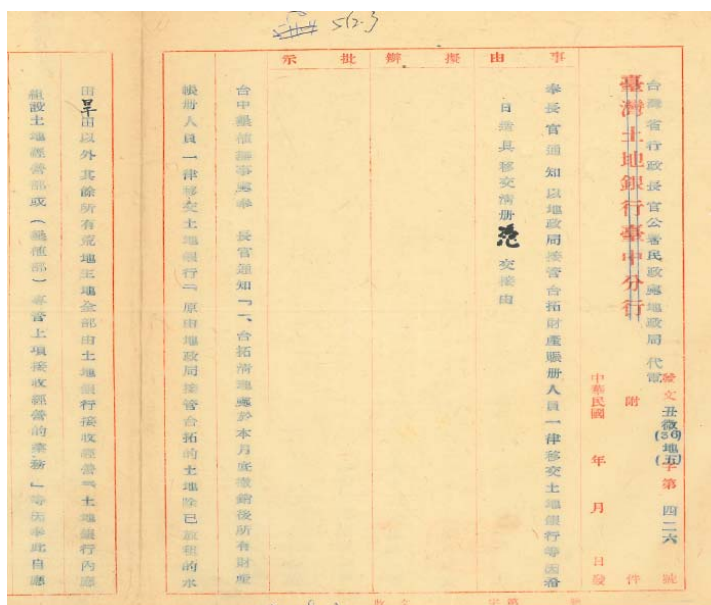 5(2.3
台灣省行政長官公署民政處地政局 代電
臺灣土地銀行臺中分行
發文丑微(36)地(五)字第 四二六 號
附 件
中華民國 年 月 日發
事由擬辦批示
奉長官通知以地政局接管台拓財產賬册人員一律移交土地銀行等因
日造具移交清册 交接由
台中 辦事處奉 長官通知「一、台拓清地處於本月底撤銷後所有財產
賬册人員一律移交土地銀行『原由地政局接管台拓的土地除已放租的水
田旱田以外其餘所有荒地王地全部由土地銀行接收經營『土地銀行內應
組設土地經營部或(墾植部)專管上項接收經營的業務」等因奉此自應